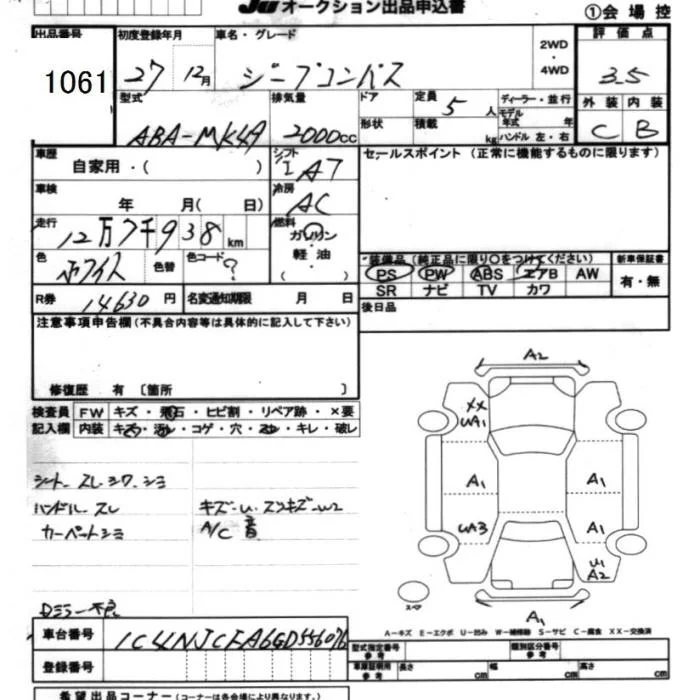 JU オークション出品申込書
①会場控
出品番号 初度登録年月 車名・グレード 2WD・4WD 評価点
1061 27 12月 ジープコンパス 3.5
型式 排気量 ドア 定員 5人 ディーラー・並行 外装 内装
ABA-MK49 2000cc 形状 積載 kg モデル年式 年 ハンドル 左・右 C B
車歴 自家用・( ) シフト IA7 セールスポイント(正常に機能するものに限ります)
車検 年 月( 日) 冷房 AC
走行 12万7千938km 燃料 ガソリン 軽油 ( )
色 ホワイト 色替 色コード ? 装備品(純正品に限り○をつけてください) 新車保証書
PS PW ABS エアB AW 有・無
SR ナビ TV カワ
R券 14630円 名変通知期限 月 日 後日品
注意事項申告欄(不具合内容等は具体的に記入して下さい)
修復歴 有 〔箇所 〕
検査員 FW キズ・飛石・ヒビ割・リペア跡・×要
記入欄 内装 キズ・汚れ・コゲ・穴・スレ・キレ・破レ
A2
XX
UA1
シート スレ シワ シミ
A1 A1
ハンドル スレ キズ・U・スリキズ・W2
カーペットシミ A/C 音
UA3 A1
U1
A2
スペア
Dミラー不良
A1
A-キズ E-エクボ U-凹み W-補修跡 S-サビ C-腐食 XX-交換済
車台番号
型式指定番号 参考 類別区分番号 参考
登録番号 車庫証明用 参考 長さ cm 幅 cm 高さ cm
希望出品コーナー(コーナーは各会場により異なります。)